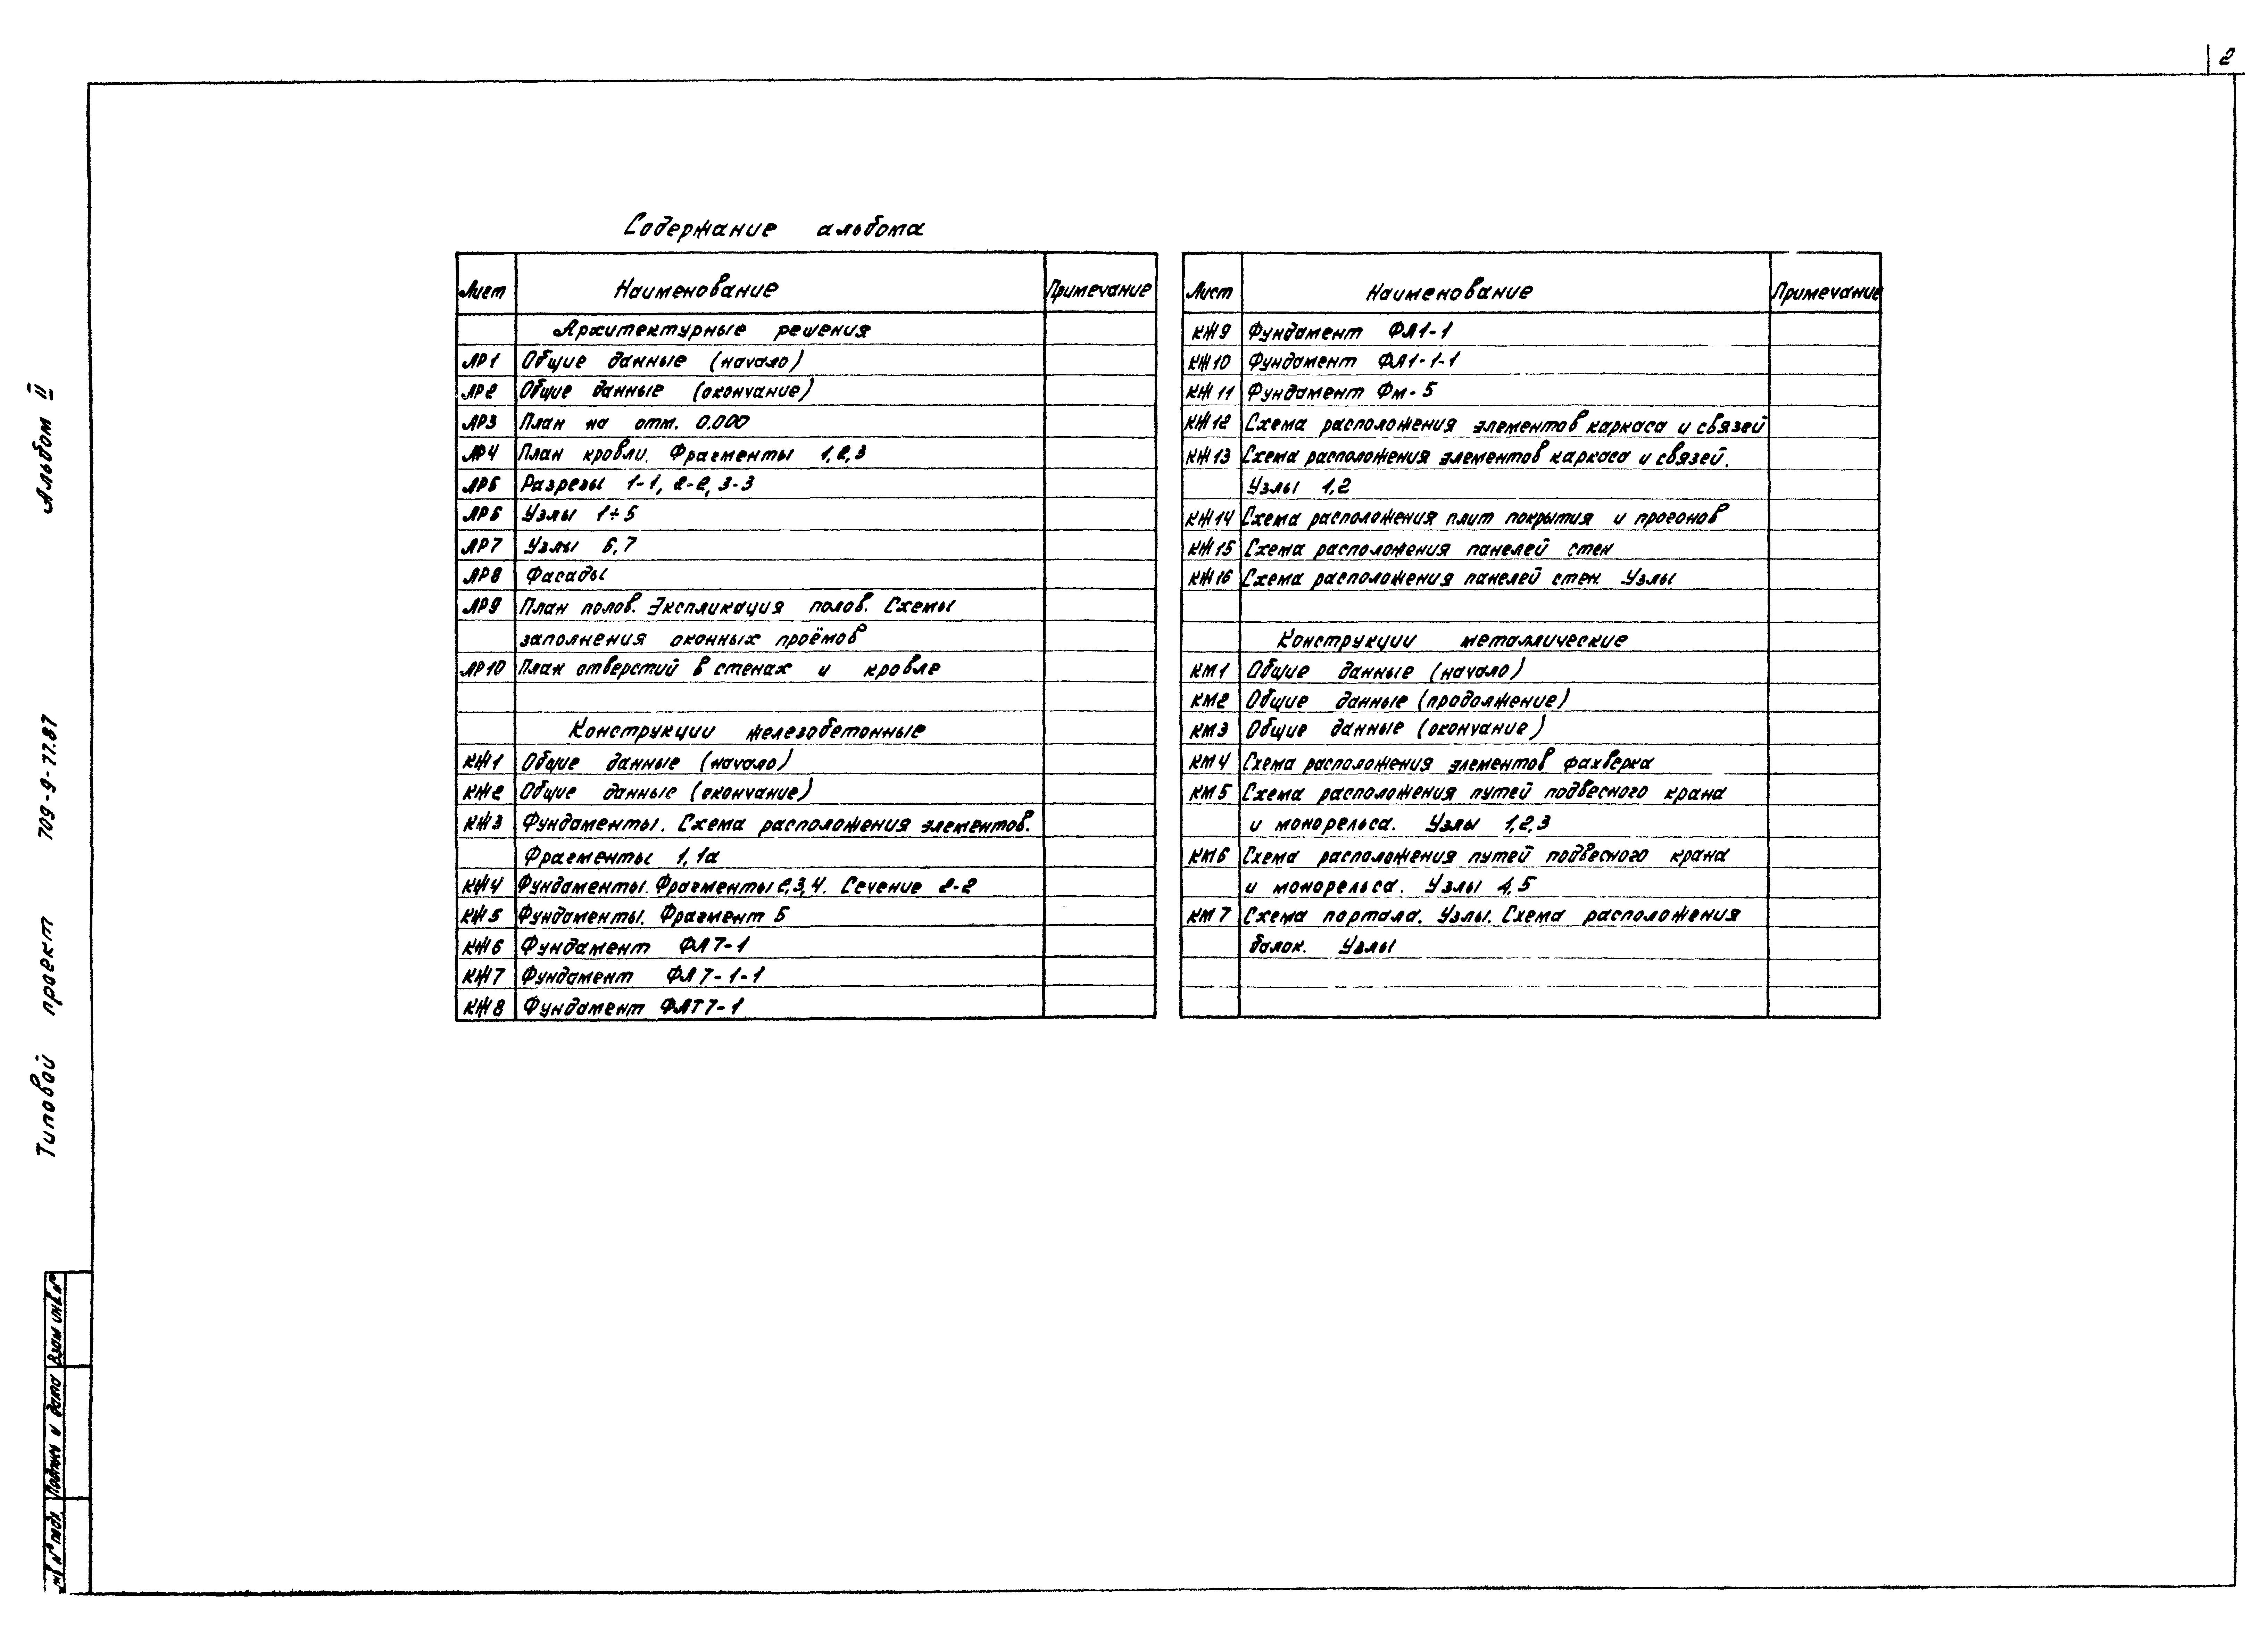 2
Содержание альбома
Лист Наименование Примечание
Архитектурные решения
АР1 Общие данные (начало)
АР2 Общие данные (окончание)
АР3 План на отм. 0.000
АР4 План кровли. Фрагменты 1,2,3
АР5 Разрезы 1-1, 2-2, 3-3
АР6 Узлы 1÷5
АР7 Узлы 6,7
АР8 Фасады
АР9 План полов. Экспликация полов. Схемы
заполнения оконных проёмов
АР10 План отверстий в стенах и кровле
Конструкции железобетонные
КЖ1 Общие данные (начало)
КЖ2 Общие данные (окончание)
КЖ3 Фундаменты. Схема расположения элементов.
Фрагменты 1, 1а
КЖ4 Фундаменты. Фрагменты 2,3,4. Сечение 2-2
КЖ5 Фундаменты. Фрагмент 5
КЖ6 Фундамент ФЛ7-1
КЖ7 Фундамент ФЛ7-1-1
КЖ8 Фундамент ФЛТ7-1
Лист Наименование Примечание
КЖ9 Фундамент ФЛ1-1
КЖ10 Фундамент ФЛ1-1-1
КЖ11 Фундамент Фм-5
КЖ12 Схема расположения элементов каркаса и связей
КЖ13 Схема расположения элементов каркаса и связей.
Узлы 1,2
КЖ14 Схема расположения плит покрытия и прогонов
КЖ15 Схема расположения панелей стен
КЖ16 Схема расположения панелей стен. Узлы
Конструкции металлические
КМ1 Общие данные (начало)
КМ2 Общие данные (продолжение)
КМ3 Общие данные (окончание)
КМ4 Схема расположения элементов фахверка
КМ5 Схема расположения путей подвесного крана
и монорельса. Узлы 1,2,3
КМ6 Схема расположения путей подвесного крана
и монорельса. Узлы 4,5
КМ7 Схема портала. Узлы. Схема расположения
балок. Узлы
Типовой проект 709-9-77.87 Альбом II
Взам инв.№
Подпись и дата
№ подл